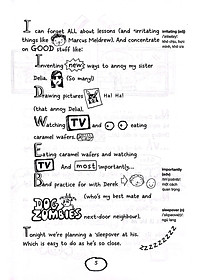 I can forget ALL about lessons (and *irritating
things like Marcus Meldrew). And concentrate
on GOOD stuff like:
Inventing new ways to annoy my sister
Delia. (So many!)
Drawing pictures Ha! Ha!
(that annoy Delia).
Watching TV and eating
caramel wafers.
Eating caramel wafers and watching
TV. And most importantly...
Band practice for with Derek
(who's my best mate and
DOG ZOMBIES next-door neighbour).
Tonight we're planning a *sleepover at his.
Which is easy to do as he's so close.
zzzzzzzz
5
irritating (adj)
khó chịu, bực
mình, khó ưa
importantly
(adv)
một cách
quan trọng
sleepover (n)